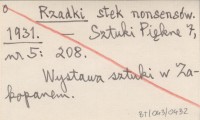 Rzadki stek nonsensów.
1931. — Sztuki Piękne 7,
nr 5: 208.
Wystawa sztuki w Za-
kopanem.
BT/043/0432